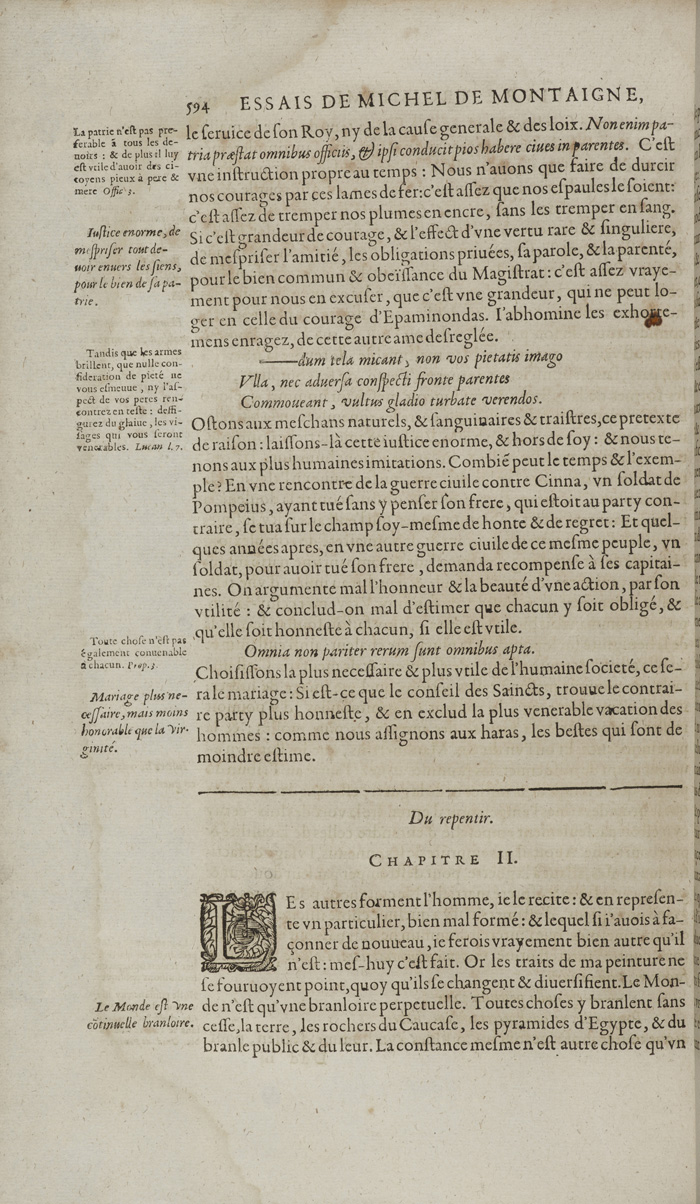 594 ESSAIS DE MICHEL DE MONTAIGNE,
le ſeruice de ſon Roy, ny de la cauſe generale & des loix. Non enim pa-
tria præſtat omnibus officiis, & ipſi conducit pios habere ciues in parentes. C'eſt
vne inſtruction propre au temps : Nous n'auons que faire de durcir
nos courages par ces lames de fer: c'eſt aſſez que nos eſpaules le ſoient:
c'eſt aſſez de tremper nos plumes en encre, ſans les tremper en ſang.
Si c'eſt grandeur de courage, & l'effect d'vne vertu rare & ſinguliere,
de meſpriſer l'amitié, les obligations priuées, ſa parole, & la parenté,
pour le bien commun & obeïſſance du Magiſtrat : c'eſt aſſez vraye-
ment pour nous en excuſer, que c'eſt vne grandeur, qui ne peut lo-
ger en celle du courage d'Epaminondas. I'abhomine les exhorte-
mens enragez, de cette autre ame deſreglée.
——dum tela micant, non vos pietatis imago
Vlla, nec aduerſa conſpecti fronte parentes
Commoueant, vultus gladio turbate verendos.
Oſtons aux meſchans naturels, & ſanguinaires & traiſtres, ce pretexte
de raiſon : laiſſons-là cette iuſtice enorme, & hors de ſoy : & nous te-
nons aux plus humaines imitations. Combiẽ peut le temps & l'exem-
ple? En vne rencontre de la guerre ciuile contre Cinna, vn ſoldat de
Pompeius, ayant tué ſans y penſer ſon frere, qui eſtoit au party con-
traire, ſe tua ſur le champ ſoy-meſme de honte & de regret : Et quel-
ques années apres, en vne autre guerre ciuile de ce meſme peuple, vn
ſoldat, pour auoir tué ſon frere, demanda recompenſe à ſes capitai-
nes. On argumente mal l'honneur & la beauté d'vne action, par ſon
vtilité : & conclud-on mal d'eſtimer que chacun y ſoit obligé, &
qu'elle ſoit honneſte à chacun, ſi elle eſt vtile.
Omnia non pariter rerum ſunt omnibus apta.
Choiſiſſons la plus neceſſaire & plus vtile de l'humaine ſocieté, ce ſe-
ra le mariage : Si eſt-ce que le conſeil des Saincts, trouue le contrai-
re party plus honneſte, & en exclud la plus venerable vacation des
hommes : comme nous aſſignons aux haras, les beſtes qui ſont de
moindre eſtime.
La patrie n'eſt pas pre-
ferable à tous les de-
uoirs : & de plus il luy
eſt vtile d'auoir des ci-
toyens pieux à pere &
mere Offic 3.
Iuſtice enorme, de
meſpriſer tout de-
uoir enuers les ſiens,
pour le bien de ſa pa-
trie.
Tandis que les armes
brillent, que nulle con-
ſideration de pieté ne
vous eſmeuue, ny l'aſ-
pect de vos peres ren-
contrez en teſte : deffi-
gurez du glaiue, les vi-
ſages qui vous ſeront
venerables. Lucan l. 7.
Toute choſe n'eſt pas
également conuenable
à chacun. Prop. 3.
Mariage plus ne-
ceſſaire, mais moins
honorable que la vir-
ginité.
Du repentir.
CHAPITRE II.
LEs autres forment l'homme, ie le recite : & en repreſen-
te vn particulier, bien mal formé : & lequel ſi i'auois à fa-
çonner de nouueau, ie ferois vrayement bien autre qu'il
n'eſt : meſ-huy c'eſt fait. Or les traits de ma peinture ne
ſe fouruoyent point, quoy qu'ils ſe changent & diuerſifient. Le Mon-
de n'eſt qu'vne branloire perpetuelle. Toutes choſes y branlent ſans
ceſſe, la terre, les rochers du Caucaſe, les pyramides d'Egypte, & du
branle public & du leur. La conſtance meſme n'eſt autre choſe qu'vn
Le Monde eſt vne
cõtinuelle branloire.